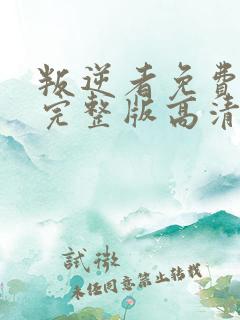 叛逆者免費
完整版高清
試微
未经同意禁止转载